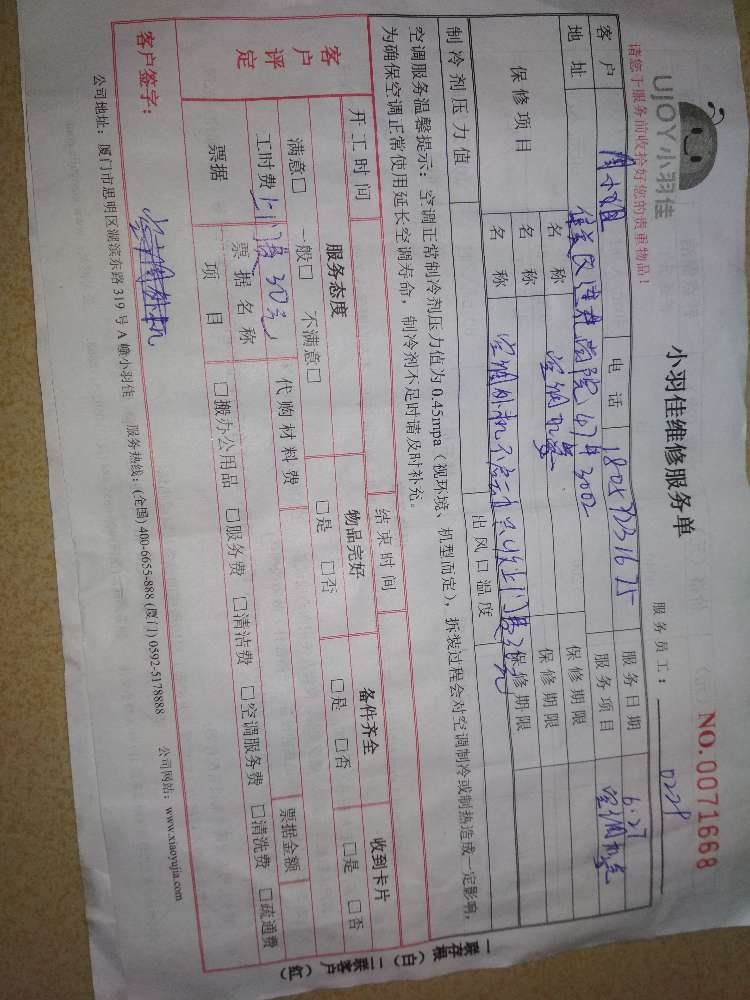 UJOY小羽佳
小羽佳维修服务单
NO.0071668
请您于服务前收拾好您的贵重物品!
服务员工: 0229
客户 周小姐 电话 服务日期 6.27
地址 集美 学院47号3002 服务项目 空调
保修项目 名称 空调 保修期限
名称 保修期限
名称 空调外机不启动只收上门费30元 保修期限
制冷剂压力值 出风口温度
空调服务温馨提示:空调正常制冷剂压力值为0.45mpa(视环境、机型而定),拆装过程会对空调制冷或制热造成一定影响,
为确保空调正常使用延长空调寿命,制冷剂不足时请及时补充。
开工时间 结束时间
客户评定 服务态度 物品完好 备件齐全 收到卡片
满意□ 一般□ 不满意□ □是 □否 □是 □否 □是 □否
工时费 上门费30元 代购材料费
票据 票据名称 票据金额
项目 □搬办公用品 □服务费 □清洁费 □空调服务费 □清洗费 □疏通费
客户签字:
公司地址:厦门市思明区湖滨东路319号A幢小羽佳 服务热线:(全国)400-6655-888 (厦门)0592-5178888 公司网站:www.xiaoyujia.com
一联存根(白) 二联客户(红)